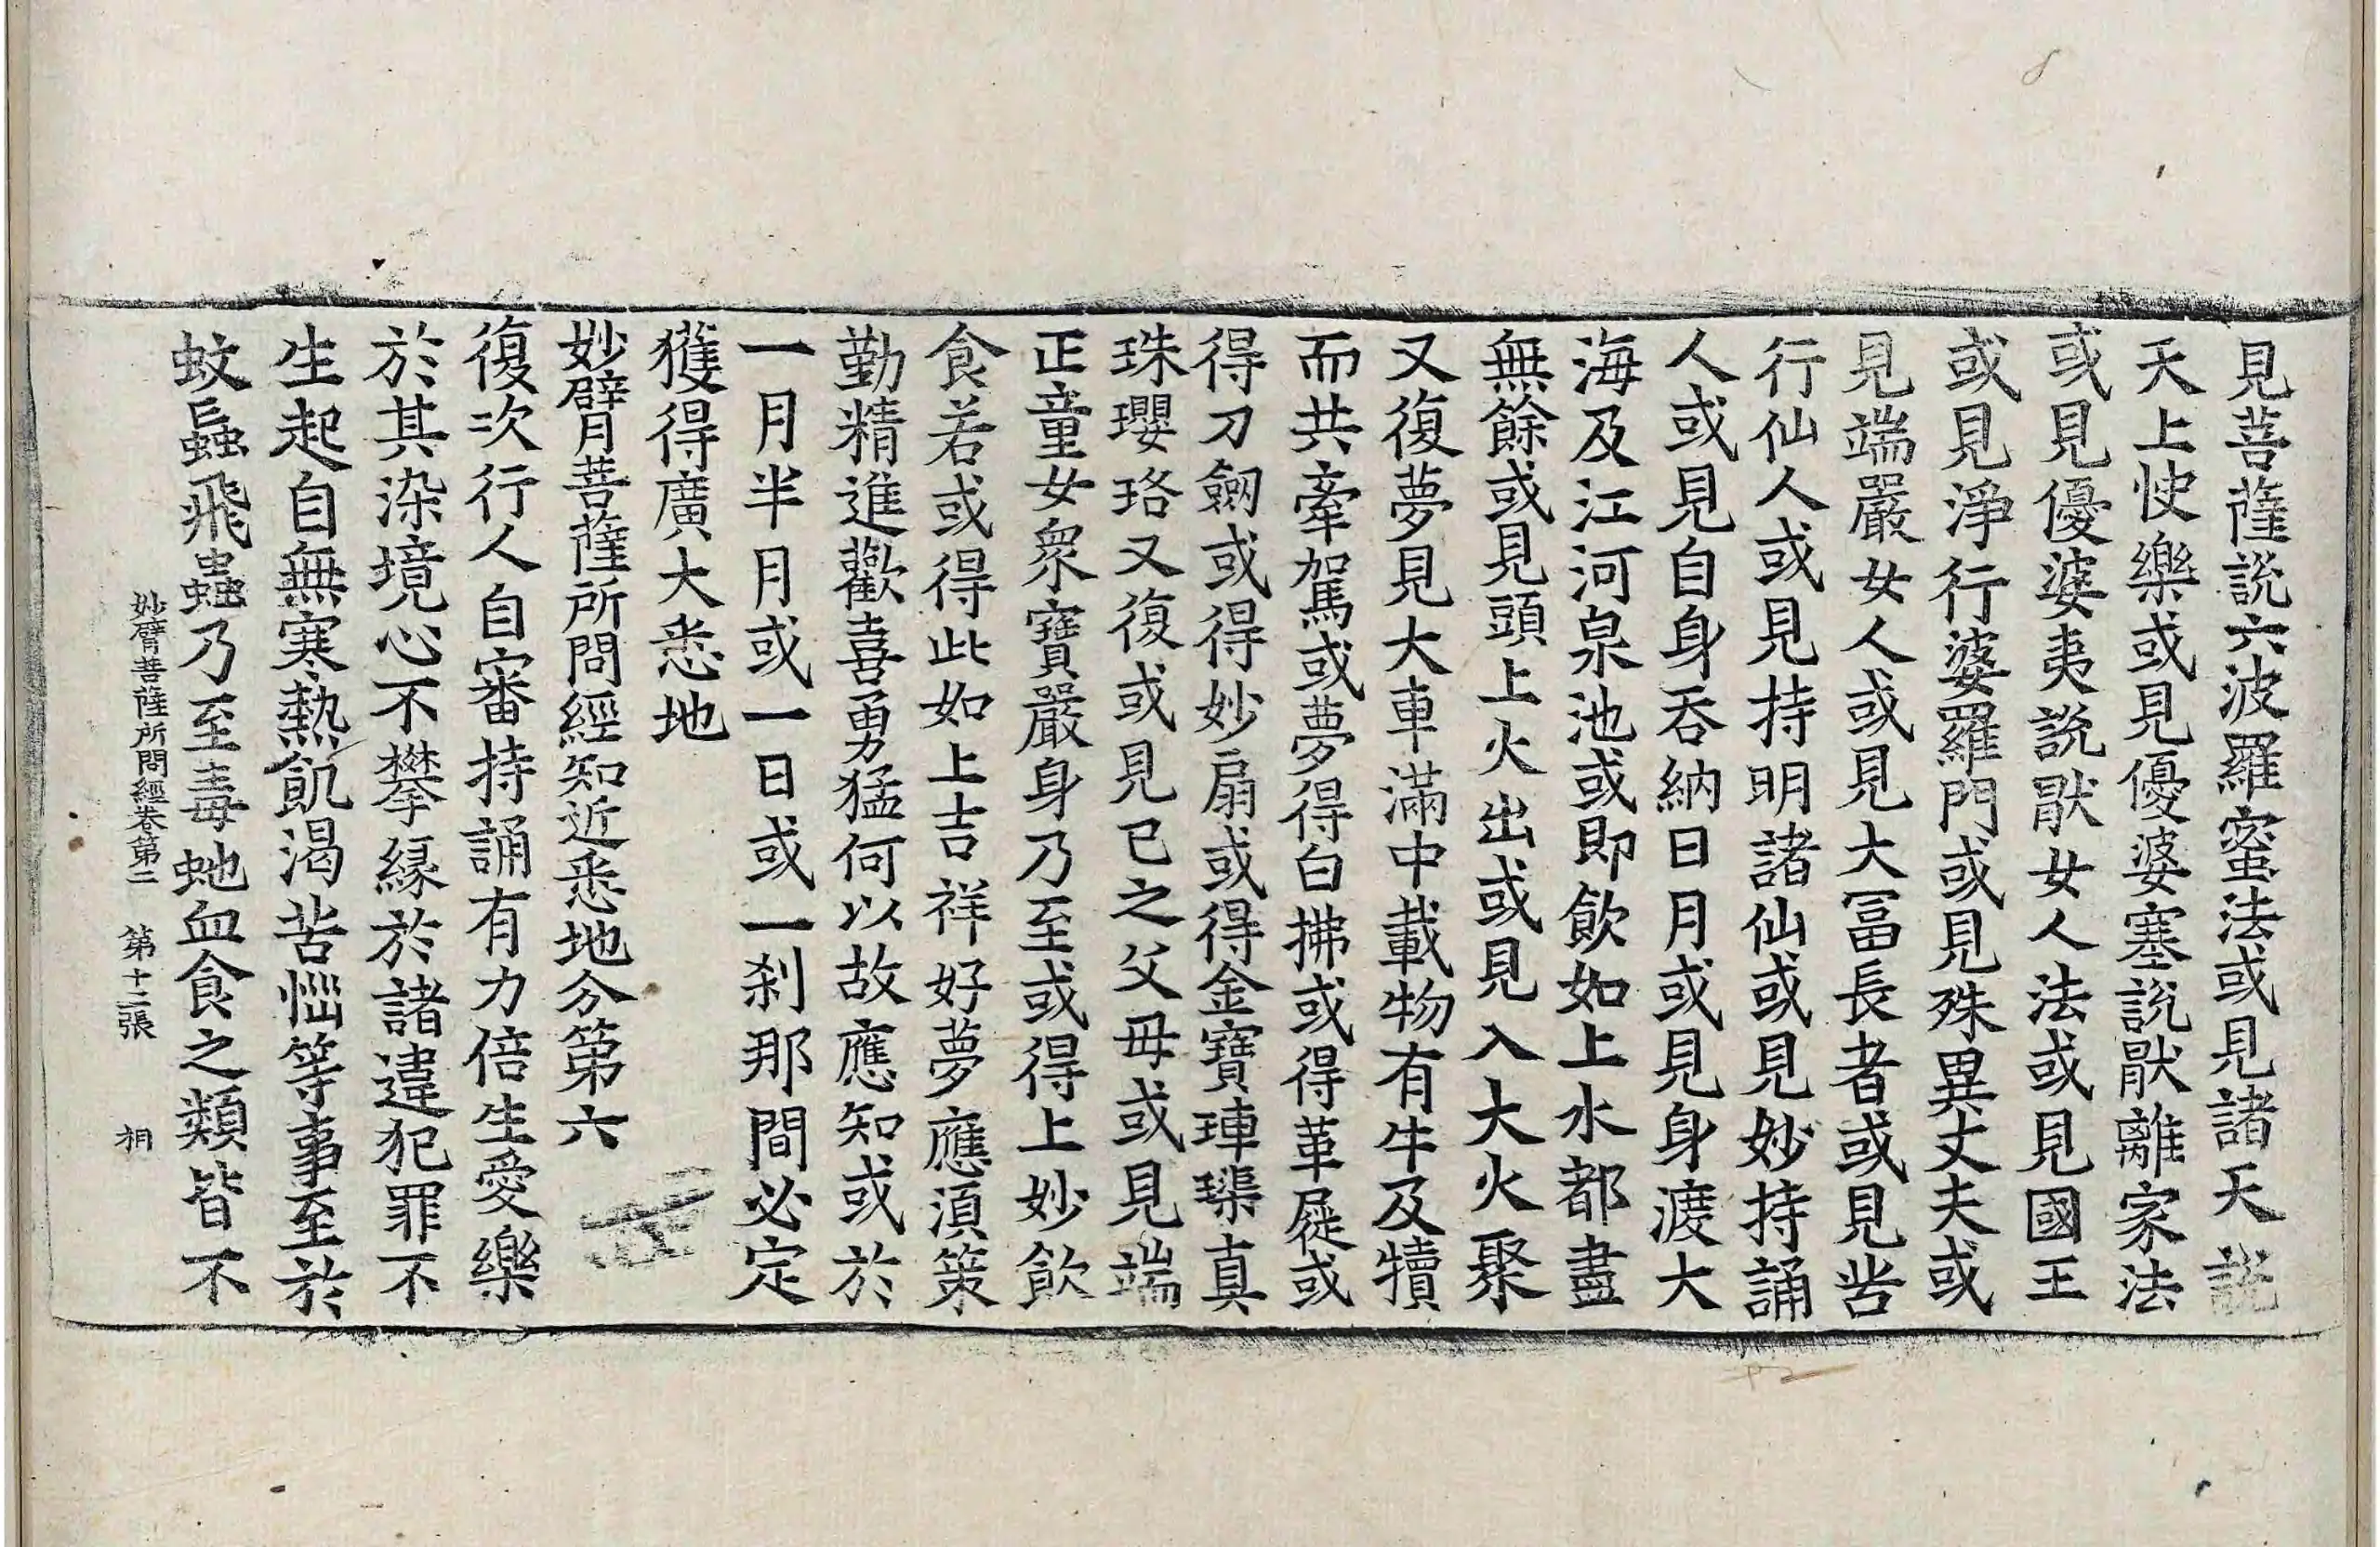 見菩薩說六波羅蜜法或見諸天說
天上快樂或見優婆塞說猒離家法
或見優婆夷說猒女人法或見國王
或見淨行婆羅門或見殊異丈夫或
見端嚴女人或見大冨長者或見苦
行仙人或見持明諸仙或見妙持誦
人或見自身吞納日月或見身渡大
海及江河泉池或即飲如上水都盡
無餘或見頭上火出或見入大火聚
又復夢見大車滿中載物有牛及犢
而共牽駕或夢得白拂或得革屣或
得刀劒或得妙扇或得金寶琗璖真
珠瓔珞又復或見己之父母或見端
正童女衆寶嚴身乃至或得上妙飲
食若或得此如上吉祥好夢應湏策
勤精進歡喜勇猛何以故應知或於
一月半月或一日或一刹那間必定
獲得廣大悉地
妙臂菩薩所問經知近悉地分第六
復次行人自審持誦有力倍生愛樂
於其染境心不攀緣於諸違犯罪不
生起自無寒熱飢渴苦惱等事至於
蚊䖟飛蟲乃至毒虵血食之類皆不
妙臂菩薩所問經卷第二 第十二張 桐